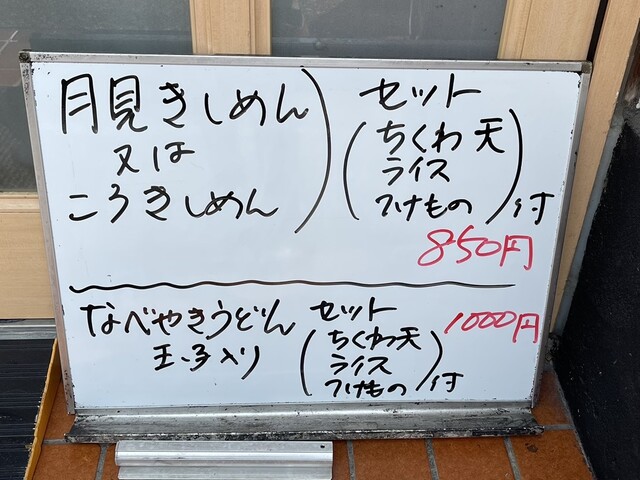 月見きしめん
又は
ころきしめん
セット
(ちくわ天
ライス
つけもの)付
850円
なべやきうどん
玉子入り
セット
(ちくわ天
ライス
つけもの)付
1000円